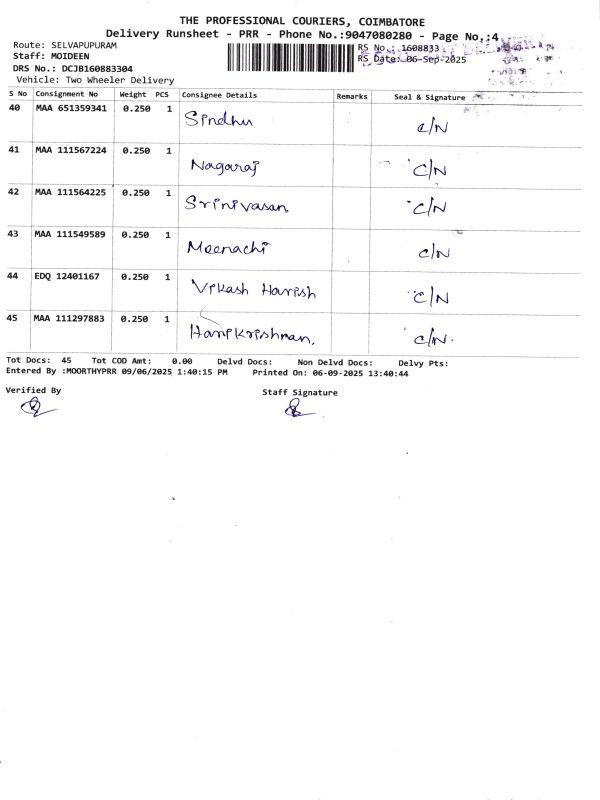 THE PROFESSIONAL COURIERS, COIMBATORE
Delivery Runsheet - PRR - Phone No.:9047080280 - Page No.:4
Route: SELVAPUPURAM
Staff: MOIDEEN
DRS No.: DCJB160883304
Vehicle: Two Wheeler Delivery
RS No.: 1608833
RS Date: 06-Sep-2025
S No Consignment No Weight PCS Consignee Details Remarks Seal & Signature
40 MAA 651359341 0.250 1 Sindhu C/N
41 MAA 111567224 0.250 1 Nagaraj C/N
42 MAA 111564225 0.250 1 Srinivasan C/N
43 MAA 111549589 0.250 1 Meenachi C/N
44 EDQ 12401167 0.250 1 Vikash Harish C/N
45 MAA 111297883 0.250 1 Harikrishnan. C/N.
Tot Docs: 45 Tot COD Amt: 0.00 Delvd Docs: Non Delvd Docs: Delvy Pts:
Entered By :MOORTHYPRR 09/06/2025 1:40:15 PM Printed On: 06-09-2025 13:40:44
Verified By Staff Signature